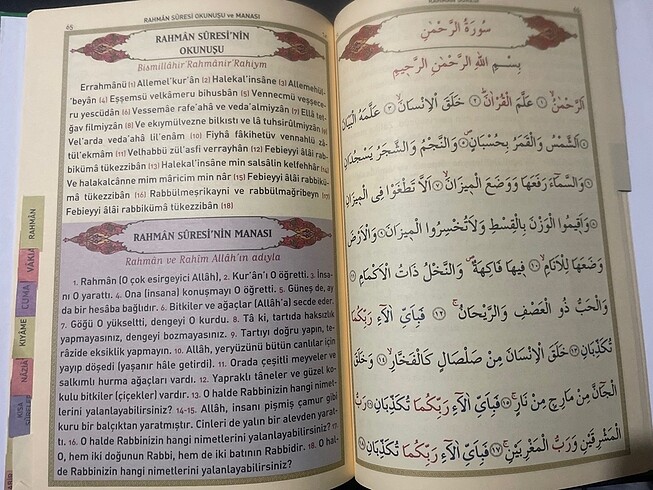 65
RAHMÂN SÛRESİ OKUNUŞU ve MANASI
RAHMÂN SÛRESİ'NİN
OKUNUŞU
Bismillâhir'Rahmânir'Rahiym
Errahmânü (1) Allemel'kur'ân (2) Halekal'insâne (3) Allemehül-
'beyân (4) Eşşemsü velkâmeru bihusbân (5) Vennecmü veşşece-
ru yescüdân (6) Vessemâe rafe'ahâ ve veda'almiyzân (7) Ellâ tet-
ğav filmiyzân (8) Ve ekıymülvezne bilkıstı ve lâ tuhsirûlmiyzân (9)
Vel'arda veda'ahâ lil'enâm (10) Fiyhâ fâkihetüv vennahlü zâ-
tül'ekmâm (11) Velhabbü zül'asfi verrayhân (12) Febieyyi âlâi rab-
bikümâ tükezzibân (13) Halekal'insâne min salsâlin kelfehhâr (14)
Ve halakalcânne mim mâricim min nâr (15) Febieyyi âlâi rabbikü-
mâ tükezzibân (16) Rabbülmeşrikayni ve rabbülmağribeyn (17)
Febieyyi âlâi rabbikümâ tükezzibân (18)
RAHMÂN SÛRESİ'NİN MANASI
Rahmân ve Rahîm Allâh'ın adıyla
1. Rahmân (O çok esirgeyici Allâh), 2. Kur'ân'ı O öğretti. 3. İnsa-
nı O yarattı. 4. Ona (insana) konuşmayı O öğretti. 5. Güneş de, ay
da bir hesâba bağlıdır. 6. Bitkiler ve ağaçlar (Allah'a) secde eder.
7. Göğü O yükseltti, dengeyi O kurdu. 8. Tâ ki, tartıda haksızlık
yapmayasınız, dengeyi bozmayasınız. 9. Tartıyı doğru yapın, te-
râzide eksiklik yapmayın. 10. Allâh, yeryüzünü bütün canlılar için
yayıp döşedi (yaşanır hâle getirdi). 11. Orada çeşitli meyveler ve
salkımlı hurma ağaçları vardı. 12. Yapraklı tâneler ve güzel ko-
kulu bitkiler (çiçekler) vardır. 13. O halde Rabbinizin hangi nimet-
lerini yalanlayabilirsiniz? 14-15. Allâh, insanı pişmiş çamur gibi
kuru bir balçıktan yaratmıştır. Cinleri de yalın bir alevden yarat-
tı. 16. O halde Rabbinizin hangi nimetlerini yalanlayabilirsiniz? 17-
O, hem iki doğunun Rabbi, hem de iki batının Rabbidir. 18. O hal-
de Rabbinizin hangi nimetlerini yalanlayabilirsiniz?
RAHMÂN
VÂKIA
CUMA
KIYÂME
NÂZİÂT
KISA
سُورَةُ الرَّحْمٰنِ
بِسْمِ اللهِ الرَّحْمٰنِ الرَّحِيمِ
اَلرَّحْمٰنُ ﴿١﴾ عَلَّمَ الْقُرْاٰنَ ﴿٢﴾ خَلَقَ الْاِنْسَانَ ﴿٣﴾ عَلَّمَهُ الْبَيَانَ
﴿٤﴾ اَلشَّمْسُ وَالْقَمَرُ بِحُسْبَانٍ ﴿٥﴾ وَالنَّجْمُ وَالشَّجَرُ يَسْجُدَانِ
﴿٦﴾ وَالسَّمَاءَ رَفَعَهَا وَوَضَعَ الْمِيزَانَ ﴿٧﴾ اَلَّا تَطْغَوْا فِى الْمِيزَانِ
﴿٨﴾ وَاَقِيمُوا الْوَزْنَ بِالْقِسْطِ وَلَاتُخْسِرُوا الْمِيزَانَ ﴿٩﴾ وَالْاَرْضَ
وَضَعَهَا لِلْاَنَامِ ﴿١٠﴾ فِيهَا فَاكِهَةٌ وَالنَّخْلُ ذَاتُ الْاَكْمَامِ ﴿١١﴾
وَالْحَبُّ ذُو الْعَصْفِ وَالرَّيْحَانُ ﴿١٢﴾ فَبِاَيِّ اٰلَاءِ رَبِّكُمَا
تُكَذِّبَانِ ﴿١٣﴾ خَلَقَ الْاِنْسَانَ مِنْ صَلْصَالٍ كَالْفَخَّارِ ﴿١٤﴾ وَخَلَقَ
الْجَانَّ مِنْ مَارِجٍ مِنْ نَارٍ ﴿١٥﴾ فَبِاَيِّ اٰلَاءِ رَبِّكُمَا تُكَذِّبَانِ ﴿١٦﴾ رَبُّ
الْمَشْرِقَيْنِ وَرَبُّ الْمَغْرِبَيْنِ ﴿١٧﴾ فَبِاَيِّ اٰلَاءِ رَبِّكُمَا تُكَذِّبَانِ ﴿١٨﴾